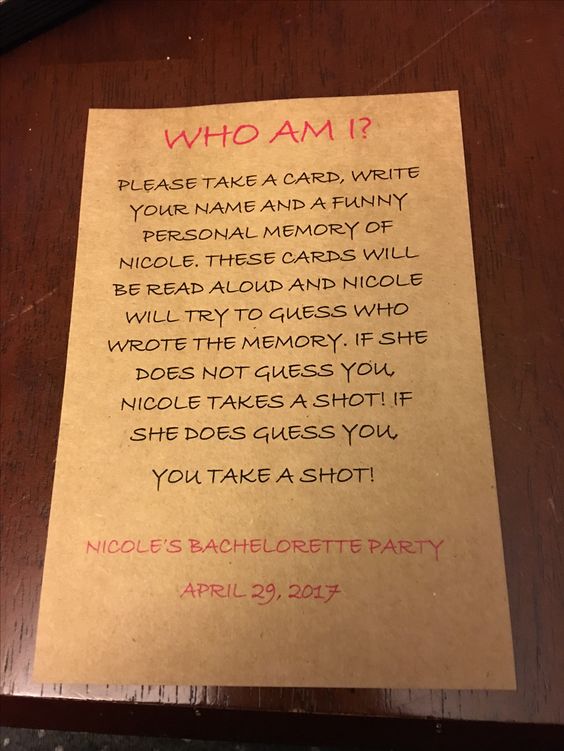 WHO AM I?
PLEASE TAKE A CARD, WRITE
YOUR NAME AND A FUNNY
PERSONAL MEMORY OF
NICOLE. THESE CARDS WILL
BE READ ALOUD AND NICOLE
WILL TRY TO GUESS WHO
WROTE THE MEMORY. IF SHE
DOES NOT GUESS YOU,
NICOLE TAKES A SHOT! IF
SHE DOES GUESS YOU,
YOU TAKE A SHOT!
NICOLE'S BACHELORETTE PARTY
APRIL 29, 2017